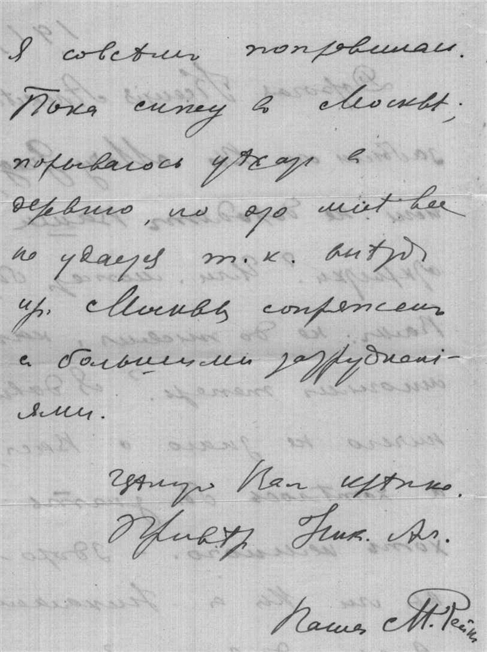 Я совсѣмъ поправилась.
Пока сижу въ Москвѣ;
порываюсь уѣхать въ
деревню, но это мнѣ все
не удается т. к. выѣздъ
из Москвы сопряженъ
съ большими затрудненi-
ями.
Цѣлую Вас крѣпко.
Привѣт Ник. Ал.
Ваша М. Рейн